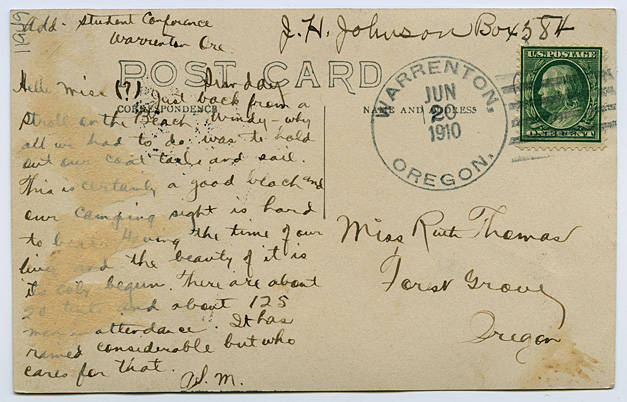 Add - Student Conference
Warrenton Ore.
J. H. Johnson Box 584
POST CARD
CORRESPONDENCE
NAME AND ADDRESS
WARRENTON,
JUN
20
1910
OREGON.
U.S. POSTAGE
ONE CENT
Hello Miss (?)
Just back from a
stroll on the Beach. Windy - why
all we had to do was to hold
out our coat tails and sail.
This is certainly a good beach and
our camping sight is hard
to beat. Having the time of our
lives and the beauty of it is
its only begun. There are about
20 tents and about 125
men in attendance. It has
rained considerable but who
cares for that.
Miss Ruth Thomas
Forst Grove
Oregon